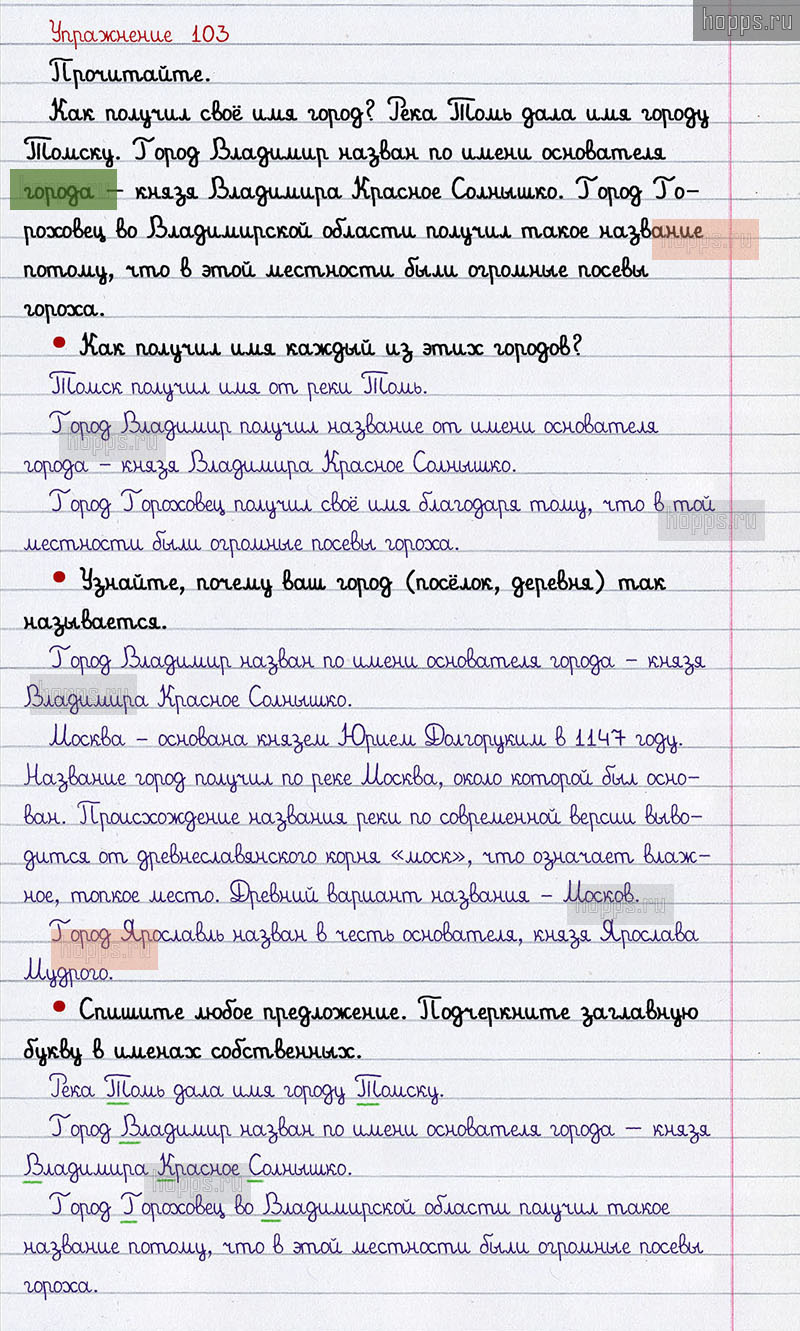 hopps.ru
Упражнение 103
Прочитайте.
Как получил своё имя город? Река Томь дала имя городу
Томску. Город Владимир назван по имени основателя
города – князя Владимира Красное Солнышко. Город Го-
роховец во Владимирской области получил такое название
hopps.ru
потому, что в этой местности были огромные посевы
гороха.
• Как получил имя каждый из этих городов?
Томск получил имя от реки Томь.
Город Владимир получил название от имени основателя
hopps.ru
города – князя Владимира Красное Солнышко.
Город Гороховец получил своё имя благодаря тому, что в той
hopps.ru
местности были огромные посевы гороха.
• Узнайте, почему ваш город (посёлок, деревня) так
называется.
Город Владимир назван по имени основателя города – князя
Владимира Красное Солнышко.
hopps.ru
Москва – основана князем Юрием Долгоруким в 1147 году.
Название город получил по реке Москва, около которой был осно-
ван. Происхождение названия реки по современной версии выво-
дится от древнеславянского корня «моск», что означает влаж-
ное, топкое место. Древний вариант названия – Москов.
hopps.ru
Город Ярославль назван в честь основателя, князя Ярослава
hopps.ru
Мудрого.
• Спишите любое предложение. Подчеркните заглавную
букву в именах собственных.
Река Томь дала имя городу Томску.
Город Владимир назван по имени основателя города — князя
Владимира Красное Солнышко.
hopps.ru
Город Гороховец во Владимирской области получил такое
название потому, что в этой местности были огромные посевы
гороха.